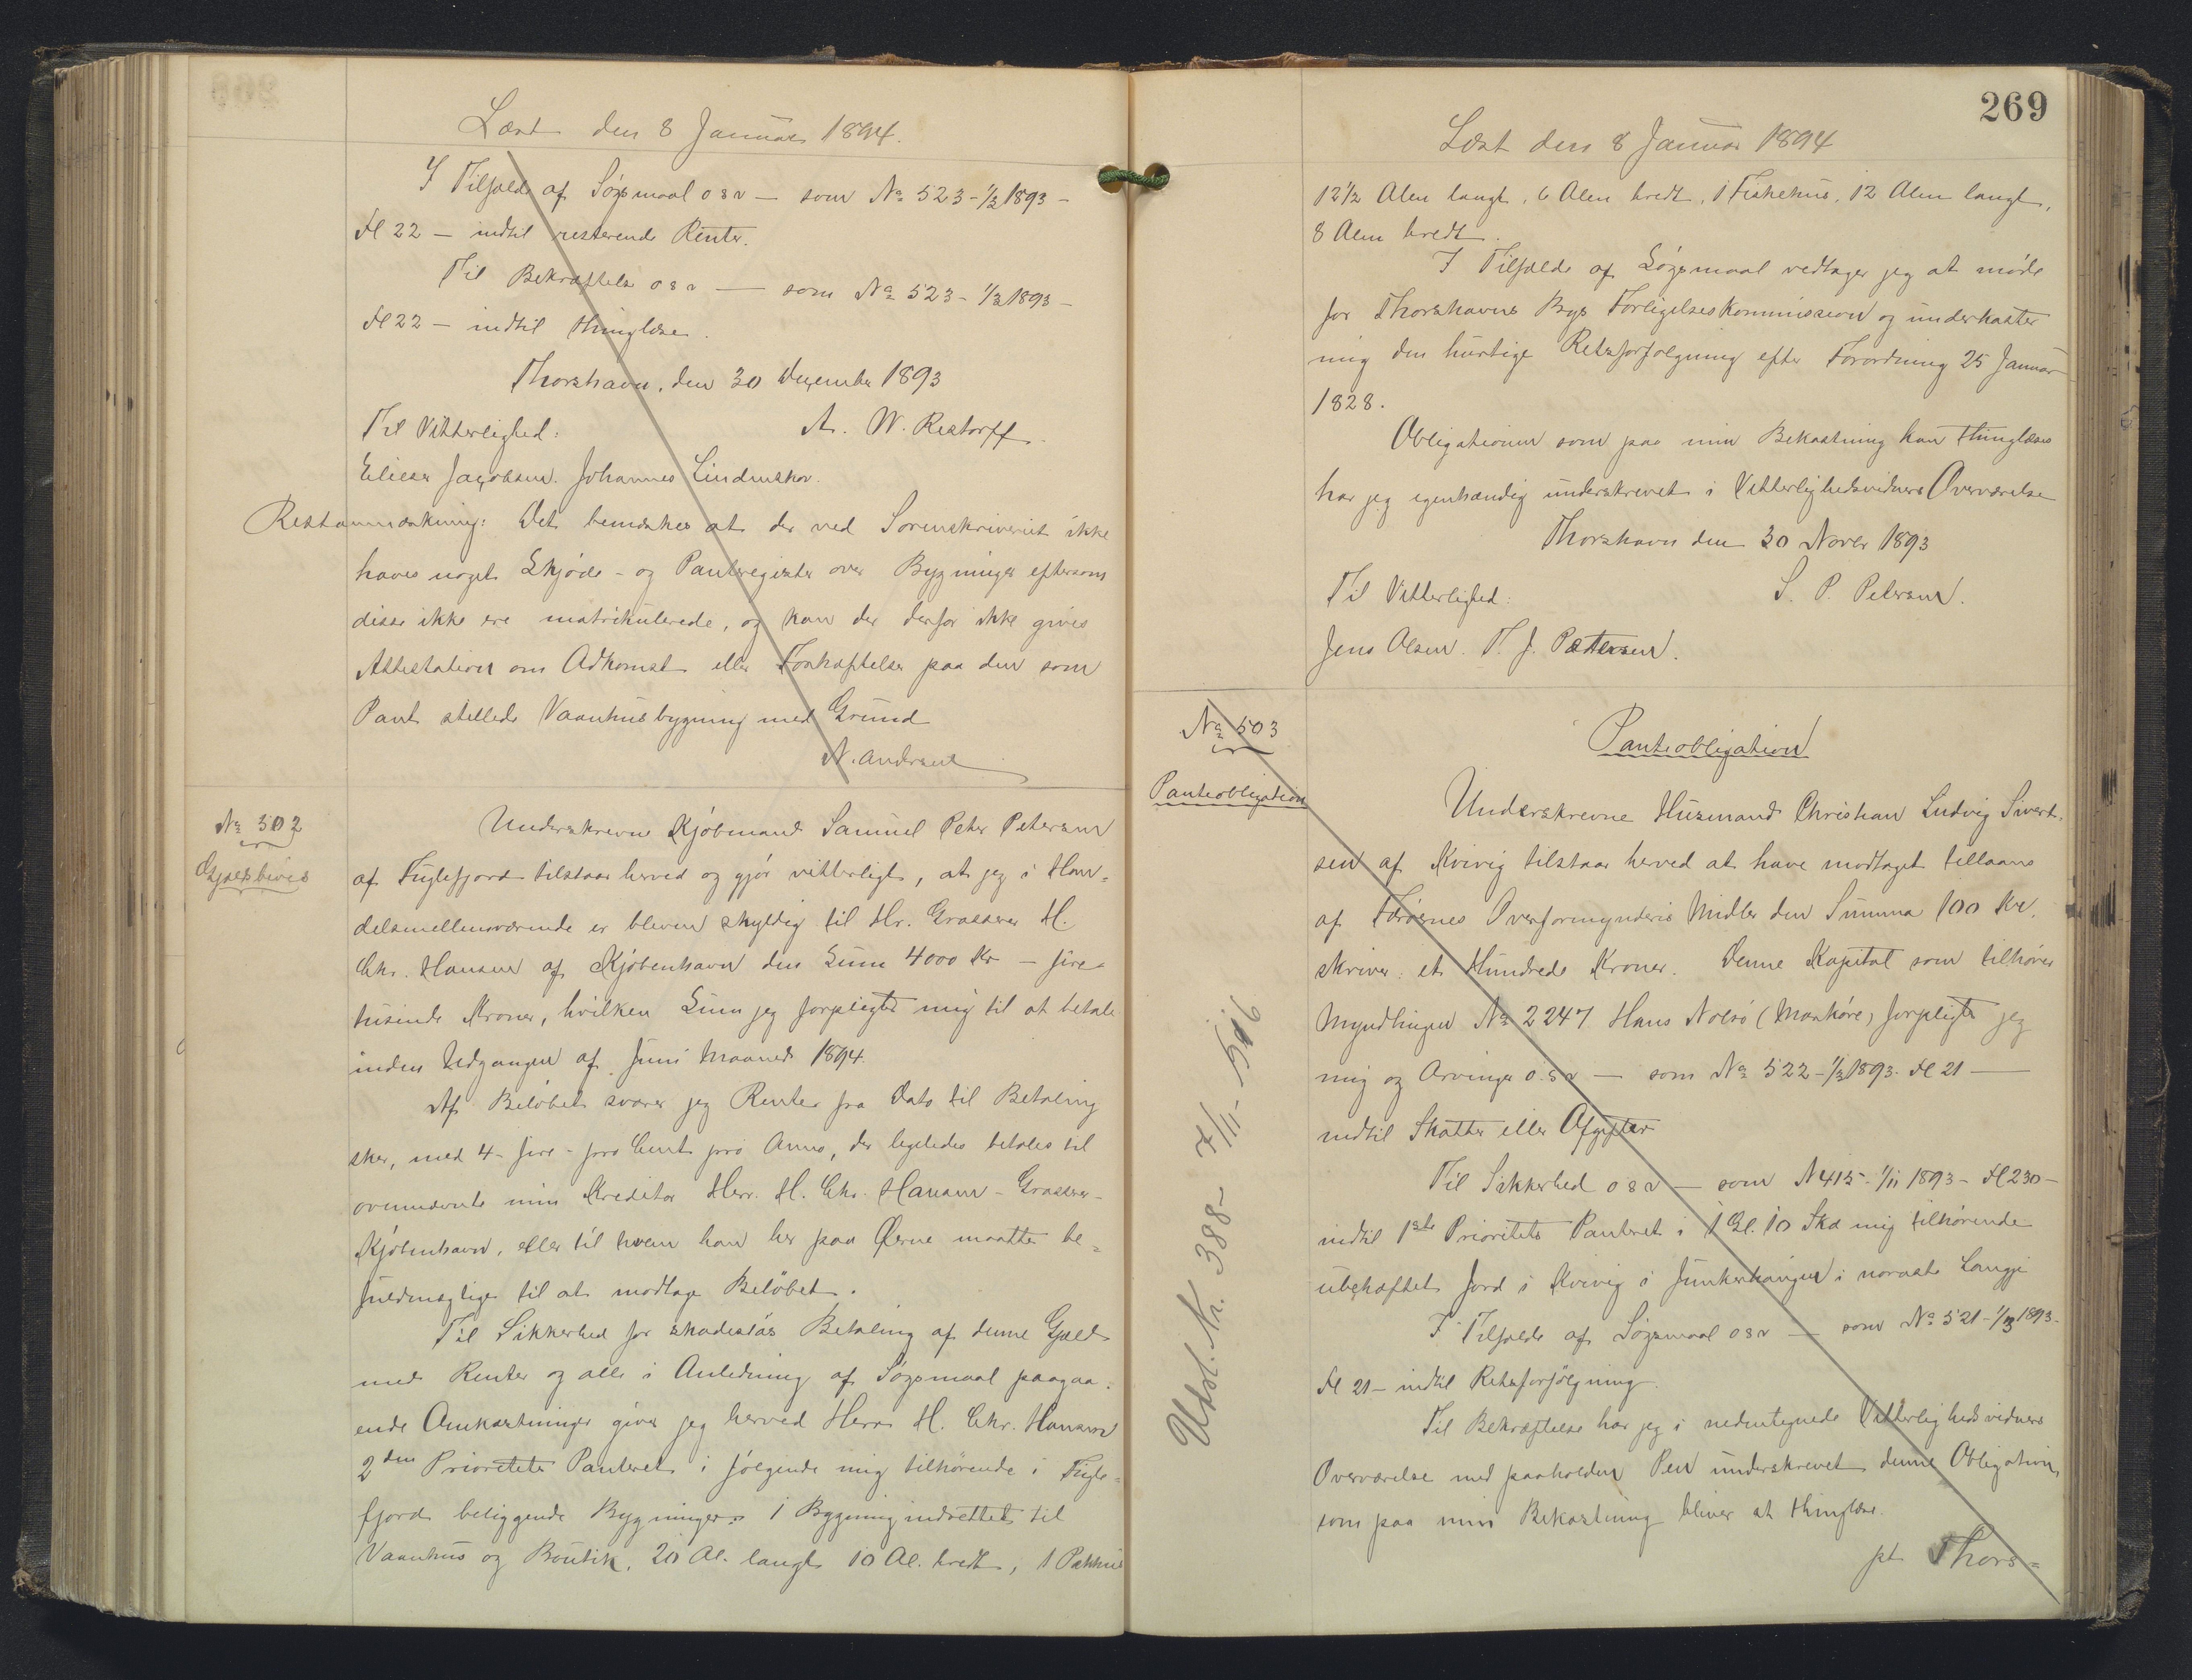 Læst den 8 Januar 1894.
I Tilfælde af Søgsmaal osv — som No 523 - 1/3 1893 -
Fl 22 — indtil resterende Renter.
Til Bekræftelse osv — som No 523 - 1/3 1893 -
Fl 22 — indtil thinglæse.
Thorshavn, den 30 Dezember 1893
Til Vitterlighed: A. W. Restorff.
Elieser Jacobsen. Johannes Lindenskov.
Restanmærkning: Det bemærkes at der ved Sorenskriveriet ikke
haves noget Skjøde- og Panteregister over Bygninger eftersom
disse ikke ere matrikulerede, og kan der derfor ikke gives
Attestation om Adkomst eller Forhæftelser paa den som
Pant stillede Vaanhusbygning med Grund
N. Andersen
No 502
Gjældsbevis
Underskrevne Kjøbmand Samuel Peter Petersen
af Fuglefjord tilstaar herved og gjør vitterligt, at jeg i Han-
delsmellemværende er bleven skyldig til Hr. Grosserer H.
Chr. Hansen af Kjøbenhavn den Sum 4000 Kr — fire-
tusinde Kroner, hvilken Sum jeg forpligter mig til at betale
inden Udgangen af Juni Maaned 1894.
Af Beløbet svarer jeg Renter fra Dato til Betaling
sker, med 4 - fire - pro Cent pro Anno, der ligeledes betales til
ovennævnte min Kreditor Herr. H. Chr. Hansen - Grosserer -
Kjøbenhavn, eller til hvem han her paa Øerne maatte be-
fuldmægtige til at modtage Beløbet.
Til Sikkerhed for skadesløs Betaling af denne Gjæld
med Renter og alle i Anledning af Søgsmaal paagaa-
ende Omkostninger giver jeg herved Herr H. Chr. Hansen
2den Prioritets Panteret i følgende mig tilhørende i Fugle-
fjord beliggende Bygninger: 1 Bygning indrettet til
Vaanhus og Boutik, 20 Al. langt 10 Al. bredt, 1 Pakhus
269
Læst den 8 Januar 1894
12 1/2 Alen langt, 6 Alen bredt, 1 Fiskehus, 12 Alen langt,
8 Alen bredt.
I Tilfælde af Søgsmaal vedtager jeg at møde
for Thorshavns Bys Forligelseskommission og underkaster
mig den hurtige Retsforfølgning efter Forordning 25 Januar
1828.
Obligationen som paa min Bekostning kan thinglæses
har jeg egenhændig underskrevet i Vitterlighedsvidners Overværelse
Thorshavn den 30 Novbr 1893
Til Vitterlighed: S. P. Petersen.
Jens Olsen. T. J. Patursen.
No 503
Panteobligation
Panteobligation
Underskrevne Husmand Christian Ludvig Sivert-
sen af Kvivig tilstaar herved at have modtaget tillaans
af Færøernes Overformynderis Midler den Summa 100 Kr.
skriver: et Hundrede Kroner. Denne Kapital som tilhører
Myndlingen No 2247 Hans Nolsø (Mankøre) forpligter jeg
mig og Arvinger o.s.v — som No 522 - 1/3 1893. Fl 21 —
indtil Skatter eller Afgifter
Til Sikkerhed osv — som N 415 - 1/11 1893 - Fl 230 -
indtil 1ste Prioritets Panteret i 1 Gl. 10 Skd mig tilhørende
ubehæftet Jord i Kvivig i Junkerhaugen i noraste Laugji
I Tilfælde af Søgsmaal osv — som No 521 - 1/3 1893 -
Fl 21 - indtil Retsforfølgning.
Til Bekræftelse har jeg i nedentegnede Vitterlighedsvidners
Overværelse med paaholden Pen underskrevet denne Obligation,
som paa min Bekostning bliver at thinglæse.
pt Thors-
Udsl. Nr. 388 - 7/11 - 1916